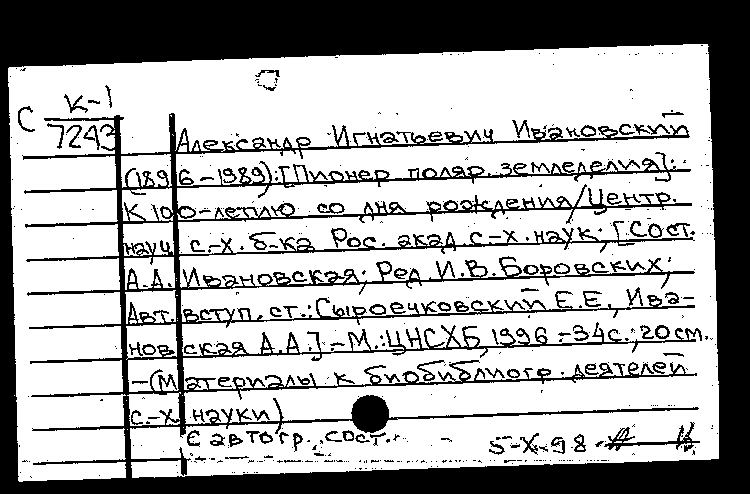 С К-1
7243
Александр Игнатьевич Ивановский
(1896-1989):[Пионер поляр. земледелия]:
К 100-летию со дня рождения/Центр.
науч. с.-х. б-ка Рос. акад. с.-х. наук; [Сост.
А.А. Ивановская; Ред. И.В. Боровских;
Авт. вступ. ст.: Сыроечковский Е.Е., Ива-
новская А.А.].-М.:ЦНСХБ, 1996.-34с.; 20см.
-(Материалы к биобиблиогр. деятелей
с.-х. науки)
С автогр. сост.
5-X-98